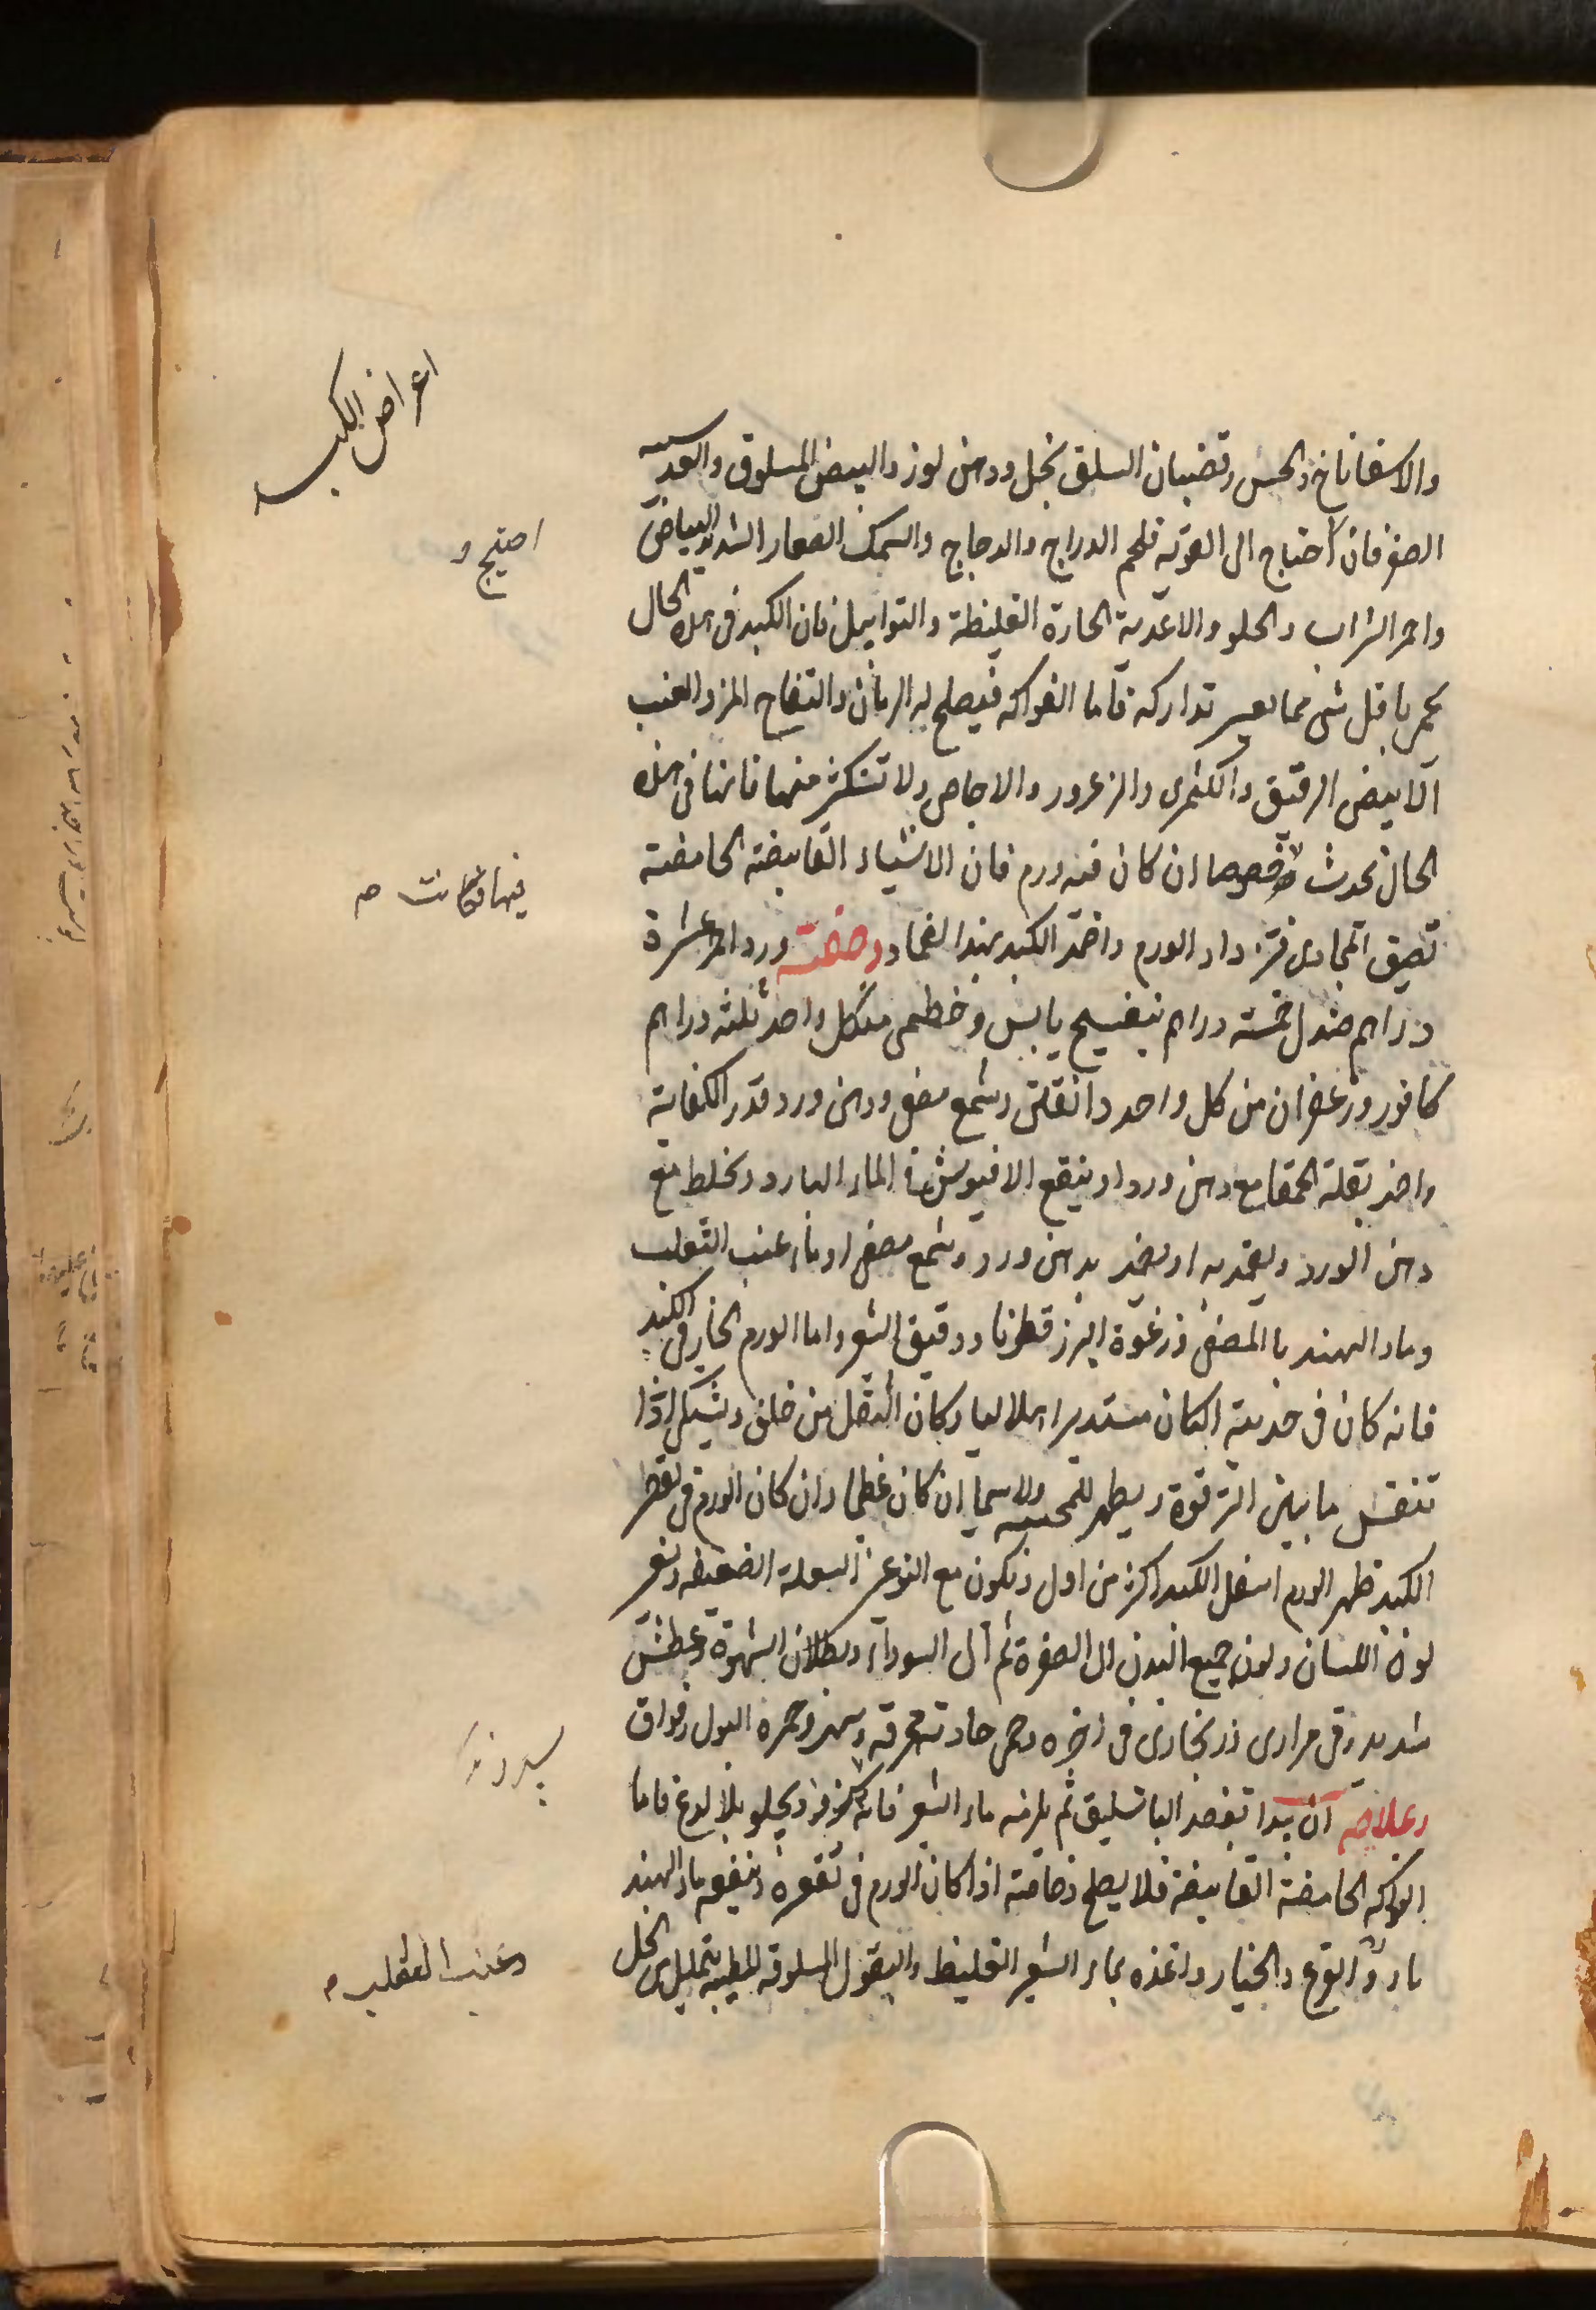 اعراض الكبد
والاسفاناخ والخس وقضبان السلق بخل ودهن لوز والبيض المسلوق والعدسية
الصفر فان احتاج الى القوية فلحم الدراج والدجاج والسمك الصغار الشديد البياض
احتيج
واحمر الشراب والحلو والاغذية الحارة الغليظة والتوابل فان الكبد فى هذه الحال
يحمر باقل شى مما يعسر تداركه فاما الفواكه فيصلح له الرمان والتفاح المز والعنب
الابيض الرقيق والكمثرى والزعرور والاجاص ولا تستكثر منها فانها فى هذه
الحال تحدث خصوصا ان كان فيه ورم فان الاشياء القابضة الحامضة
فيها
تضيق المجارى فتزداد الورم واضمد الكبد بهذا الضماد وصفته ورد احمر عشرة
دراهم صندل خمسة دراهم بنفسج يابس وخطمى من كل واحد ثلثة دراهم
كافور وزعفران من كل واحد دانقين وشمع مصفى ودهن ورد قدر الكفاية
واضمد بقلة الحمقا مع دهن ورد او ينقع الافيوش فى الماء البارد ويخلط مع
دهن الورد ويضمد به او يضمد بدهن ورد وشمع مصفى او ماء عنب الثعلب
وماء الهندبا المصفى ورغوة البزرقطونا ودقيق الشعير واما الورم الحار فى الكبد
فانه كان فى حدبته كان مستديرا هلاليا وكان الثقل من خلف ويشتكى اذا
تنفس ما بين الترقوة ويظهر للمجسة ولا سيما ان كان عظيما وان كان الورم فى تقعر
الكبد ظهر الورم اسفل الكبد اكثر من اول وتكون مع النوعين السعلة الضعيفة وتغير
لون اللسان ولون جميع البدن الى الصفرة ثم الى السوداء وبطلان الشهوة وعطش
شديد وقى مرارى زنجارى فى اخره وحمى حادة محرقة وسهر وحمرة البول وفواق
وعلاجه ان يبدا بفصد الباسليق ثم يلزمه ماء الشعير فانه يبرد ويجلو بلا لذع فاما
الفواكه الحامضة القابضة فلا يصلح وخاصة اذا كان الورم فى تقعره وينفعه ماء الهند
با وماء القرع والخيار واغذه بماء الشعير الغليظ والبقول المسلوقة المطيبة بقليل من الخل
وعنب الثعلب